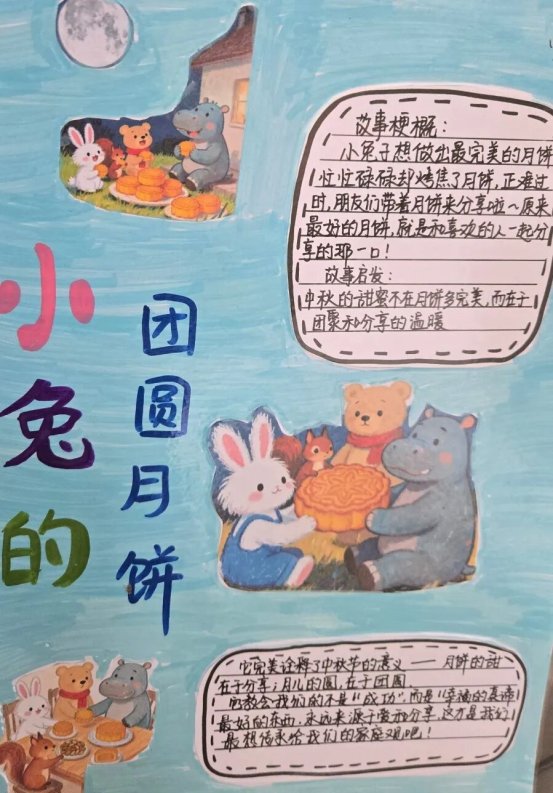 小兔的
团圆月饼
故事梗概：
小兔子想做出最完美的月饼
忙忙碌碌却烤焦了月饼，正难过
时，朋友们带着月饼来分享啦～原来
最好的月饼，就是和喜欢的人一起分
享的那一口！
故事启发：
中秋的甜蜜不在月饼多完美，而在于
团聚和分享的温暖
它完美诠释了中秋节的意义——月饼的甜
在于分享；月儿的圆，在于团圆
它教会我们的不是“成功”而是“幸福”的真谛
最好的东西，永远来源于爱和分享，这才是我们
最想传承给我们的家庭观吧！